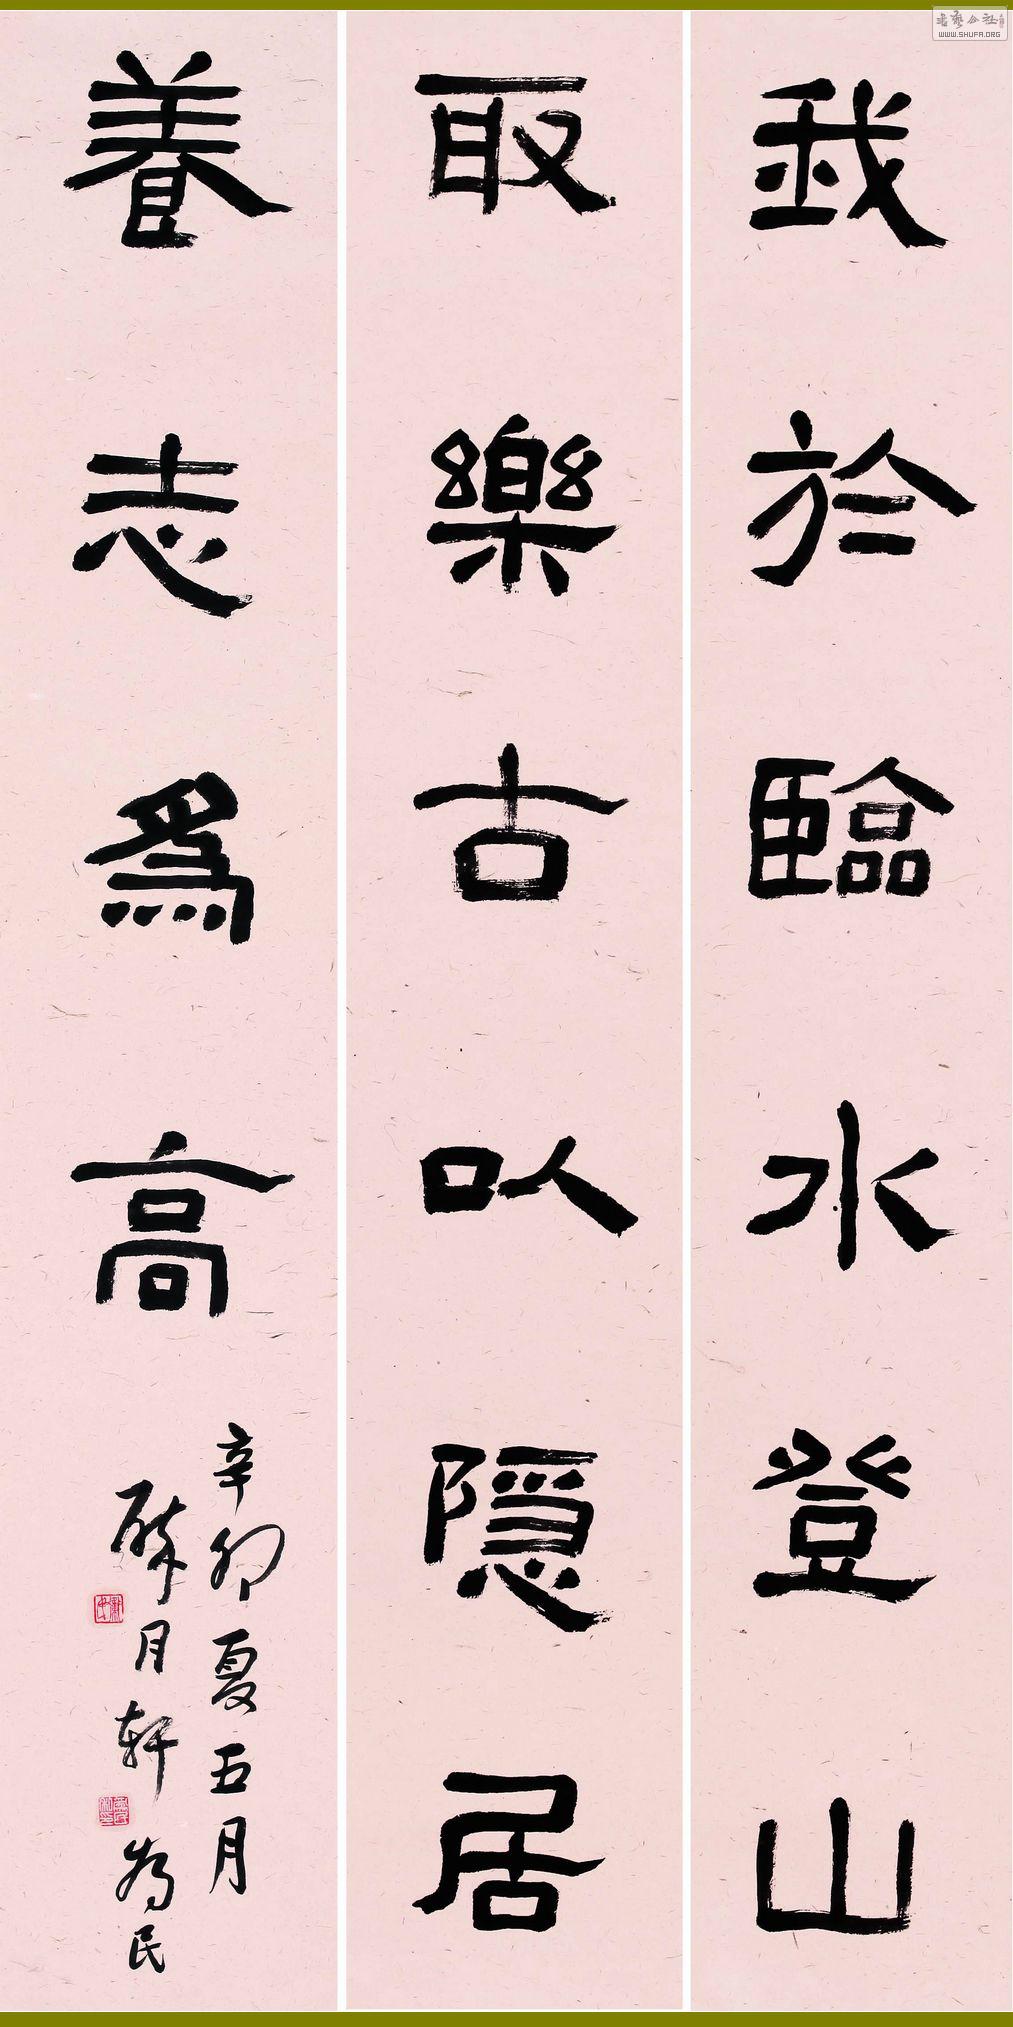 書藝公社
WWW.SHUFA.ORG
我於臨水登山
取樂古以隱居
養志爲高
辛卯夏五月
醉月轩为民